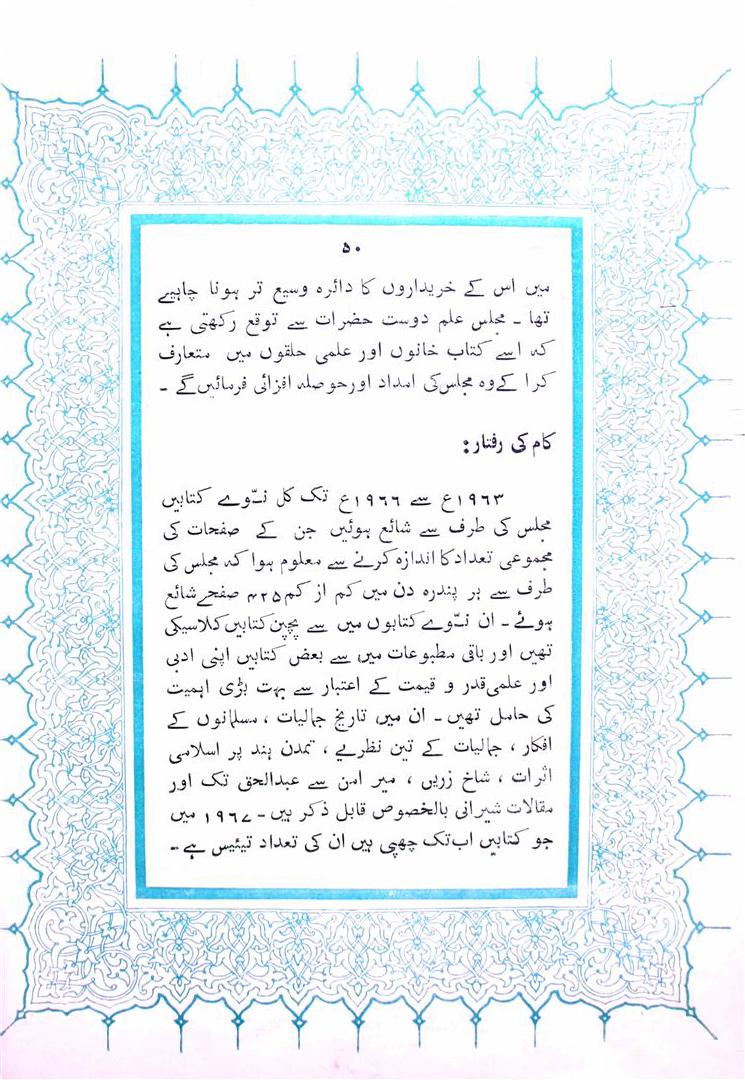 ۵۰
میں اس کے خریداروں کا دائرہ وسیع تر ہونا چاہیے
تھا ۔ مجلس علم دوست حضرات سے توقع رکھتی ہے
کہ اسے کتاب خانوں اور علمی حلقوں میں متعارف
کرا کے وہ مجلس کی امداد اور حوصلہ افزائی فرمائیں گے ۔
کام کی رفتار:
۱۹۶۳ع سے ۱۹۶۶ع تک کل نوّے کتابیں
مجلس کی طرف سے شائع ہوئیں جن کے صفحات کی
مجموعی تعداد کا اندازہ کرنے سے معلوم ہوا کہ مجلس کی
طرف سے ہر پندرہ دن میں کم از کم ۴۲۵ صفحے شائع
ہوئے ۔ ان نوّے کتابوں میں سے پچپن کتابیں کلاسیکی
تھیں اور باقی مطبوعات میں سے بعض کتابیں اپنی ادبی
اور علمی قدر و قیمت کے اعتبار سے بہت بڑی اہمیت
کی حامل تھیں ۔ ان میں تاریخ جمالیات ، مسلمانوں کے
افکار ، جمالیات کے تین نظریے ، تمدن ہند پر اسلامی
اثرات ، شاخ زریں ، میر امن سے عبدالحق تک اور
مقالات شیرانی بالخصوص قابل ذکر ہیں ۔ ۱۹۶۷ میں
جو کتابیں اب تک چھپی ہیں ان کی تعداد تیئیس ہے ۔